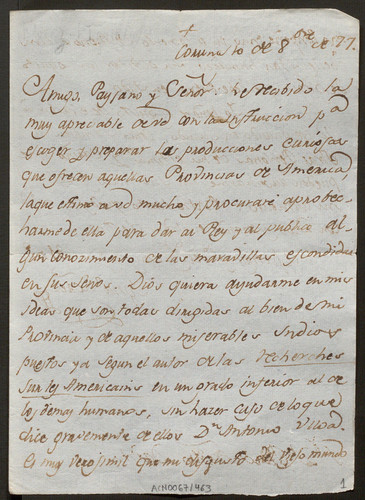 +
Coruña 10 de 8bre de 77.
Amigo, Paysano y Señor: he recibido la
muy apreciable de vd con la Instruccion pa
escoger y preparar las producciones curiosas
que ofrecen aquellas Provincias de America
laque estimo a vd mucho y procuraré aprobe-
charme de ella para dar al Rey y al publico al-
gun conocimiento de las marabillas escondidas
en sus senos. Dios quiera ayudarme en mis
ideas que son todas dirigidas al bien de mi
Provincia y de aquellos miserables Indios
puestos ya segun el autor de las recherches
sur les Americains en un grado inferior al de
los demas humanos, sin hazer caso de loque
dice gravemente de ellos Dn Antonio Ulloa.
Es muy verosimil que mi del viejo mundo
1
ACN0067/463